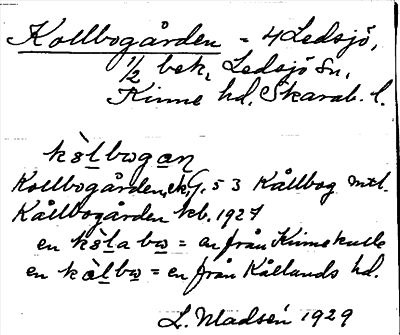 Kollbogården = 4 Ledsjö,
1/2 bek, Ledsjö sn,
Kinne hd, Skarab. l.
kòlbogan
Kollbogården, ek, 53 Kållbog mtl.
Kållbogården kb. 1927
en kòla bo = en från Kinnekulle
en kàlbo = en från Kållands hd.
L. Madsén 1929